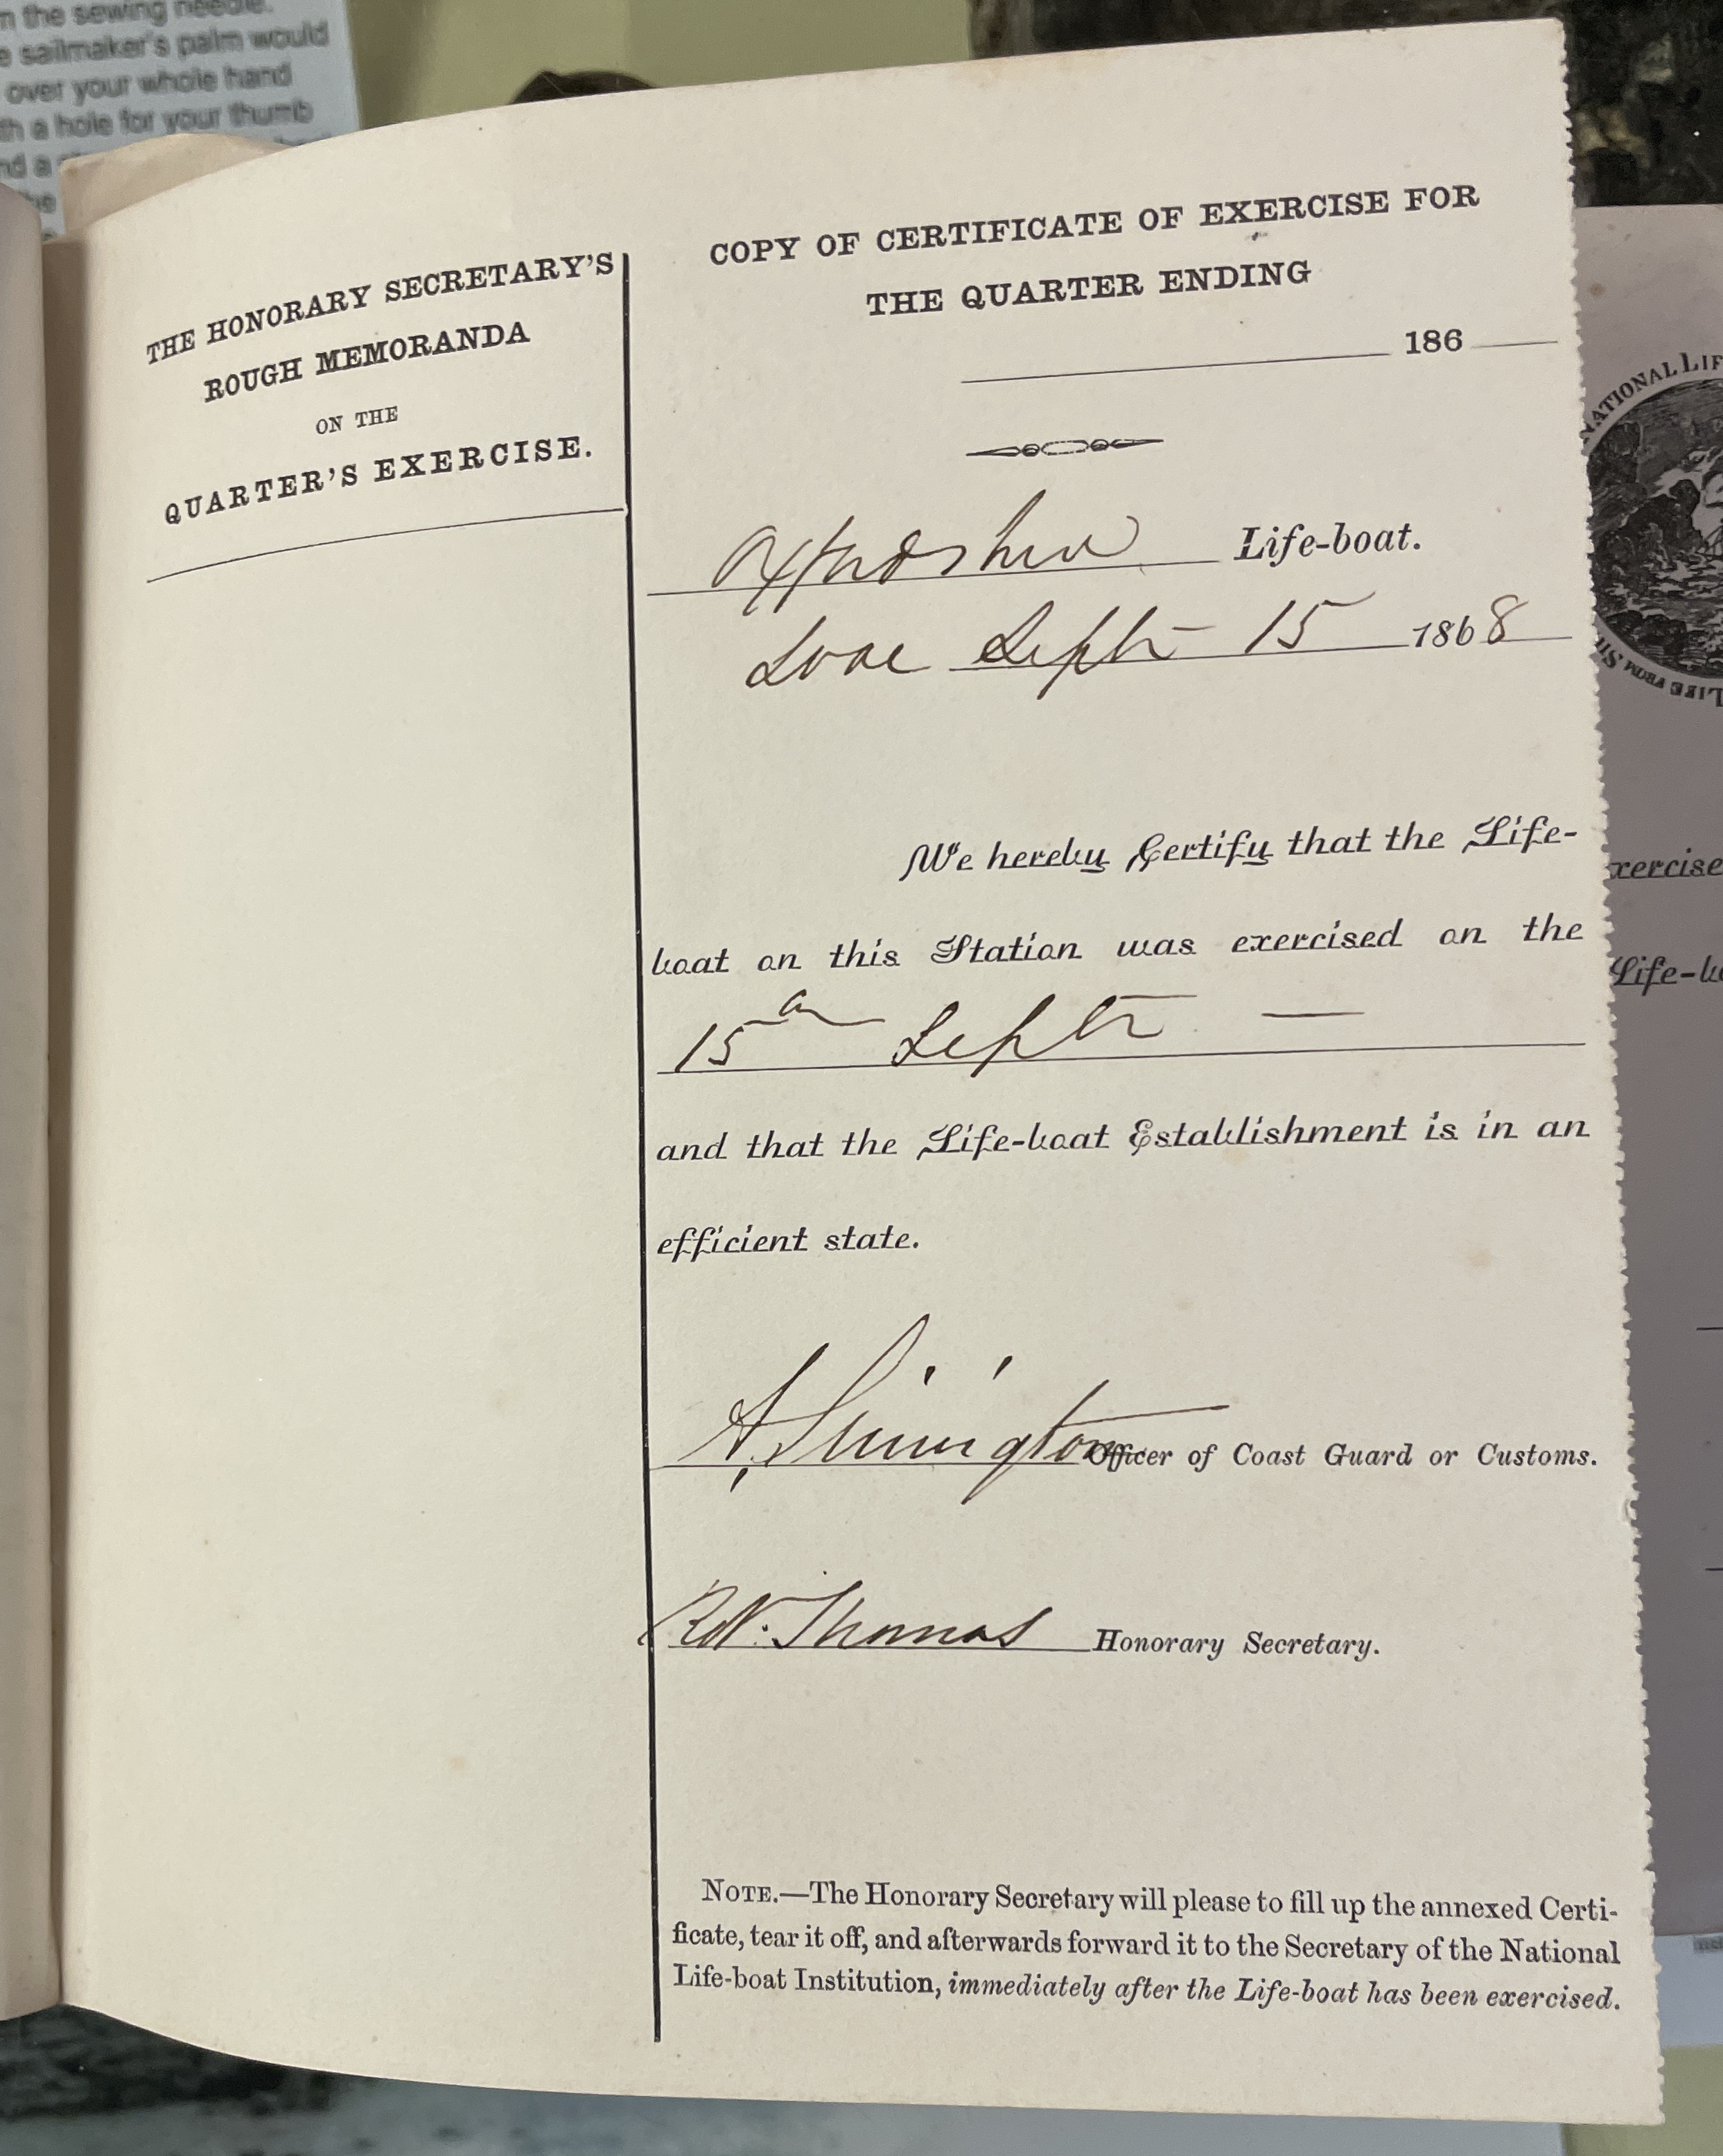 m the sewing needle.
e sailmaker's palm would
over your whole hand
th a hole for your thumb
nd a
THE HONORARY SECRETARY'S
ROUGH MEMORANDA
ON THE
QUARTER'S EXERCISE.
COPY OF CERTIFICATE OF EXERCISE FOR
THE QUARTER ENDING
186
Oxfordshire Life-boat.
Looe Septr 15 1868
We hereby Certify that the Life-
boat on this Station was exercised on the
15 Septr —
and that the Life-boat Establishment is in an
efficient state.
Officer of Coast Guard or Customs.
Thomas Honorary Secretary.
NOTE.—The Honorary Secretary will please to fill up the annexed Certi-
ficate, tear it off, and afterwards forward it to the Secretary of the National
Life-boat Institution, immediately after the Life-boat has been exercised.
NATIONAL LIF
LIFE FROM SH
xercise
Life-bo